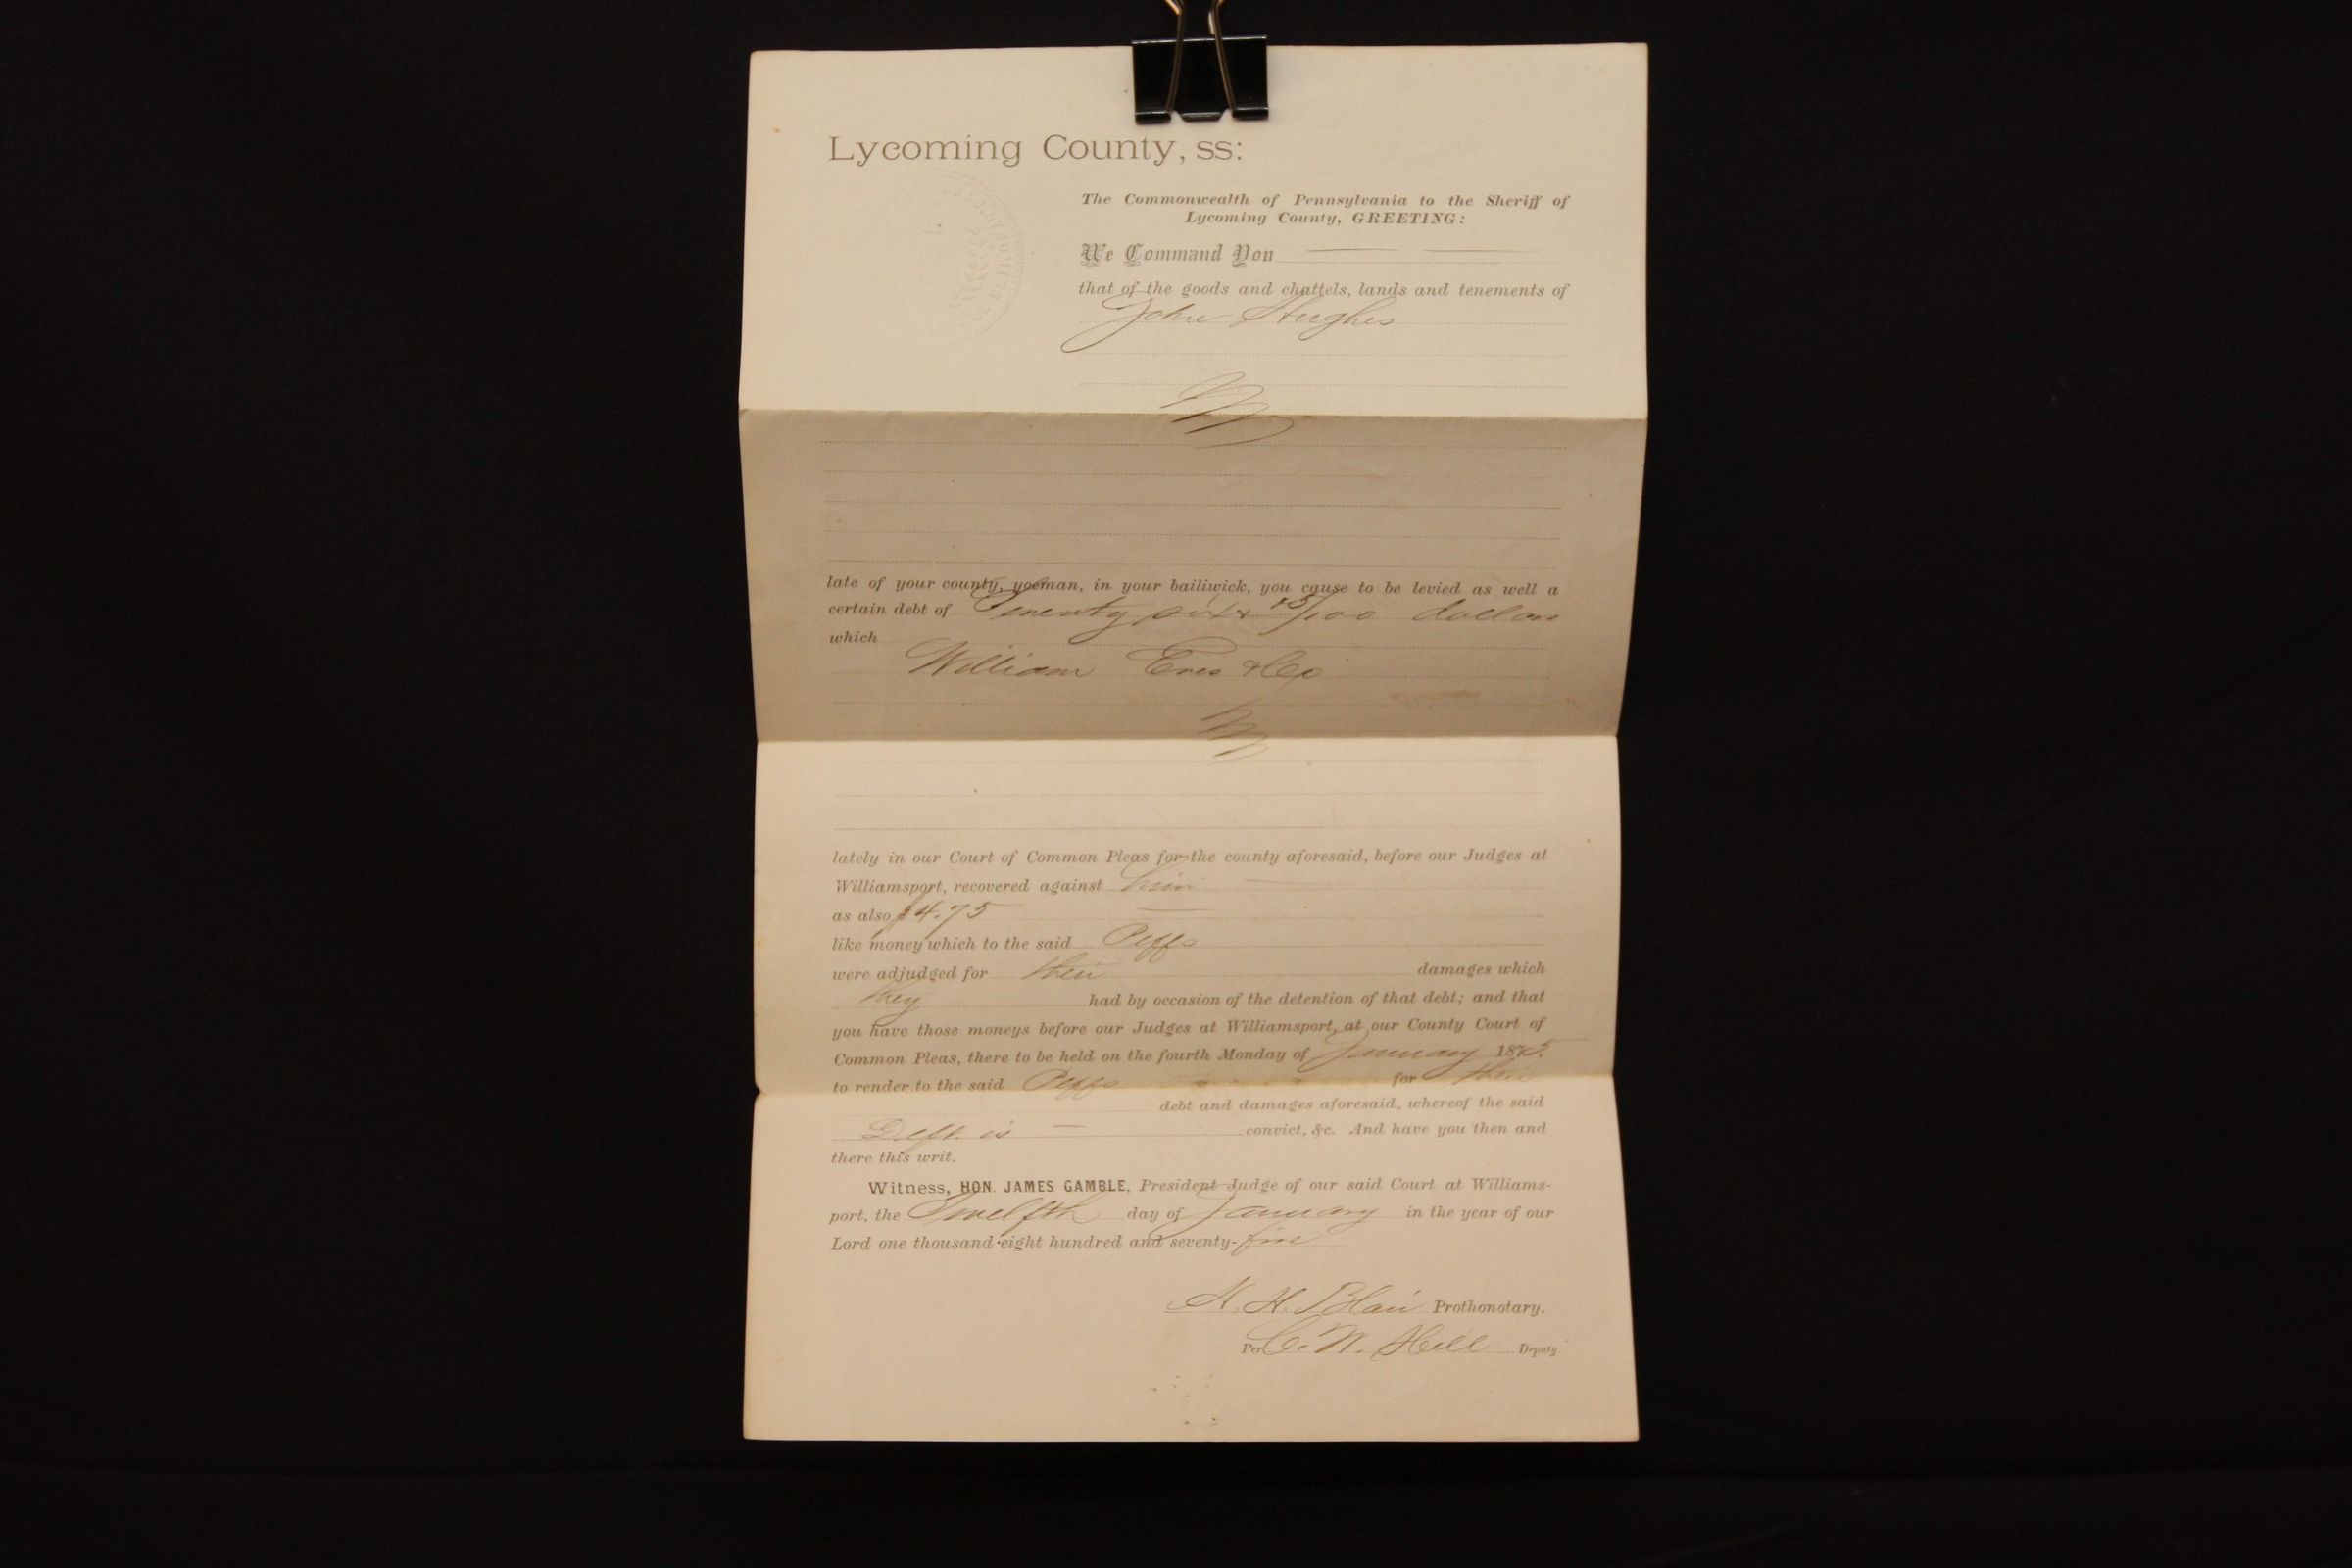 Lycoming County, ss:
The Commonwealth of Pennsylvania to the Sheriff of
Lycoming County, GREETING:
We Command You
that of the goods and chattels, lands and tenements of
John Hughes
late of your county, yoeman, in your bailiwick, you cause to be levied as well a
certain debt of Twenty six /100 dollars
which
William & Co
lately in our Court of Common Pleas for the county aforesaid, before our Judges at
Williamsport, recovered against him
as also $4.75
like money which to the said Plffs
were adjudged for their damages which
they had by occasion of the detention of that debt; and that
you have those moneys before our Judges at Williamsport, at our County Court of
Common Pleas, there to be held on the fourth Monday of January 1875.
to render to the said Plffs for their
debt and damages aforesaid, whereof the said
Deft. is convict, &c. And have you then and
there this writ.
Witness, HON. JAMES GAMBLE, President Judge of our said Court at Williams-
port, the Twelfth day of January in the year of our
Lord one thousand eight hundred and seventy-five
H. H. Blair Prothonotary.
Per C. W. Hill Deputy